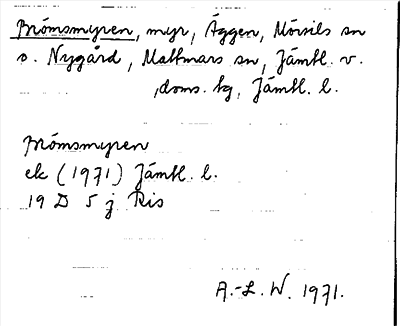 Brömsmyren, myr, Äggen, Mörsils sn
o. Nygård, Mattmars sn, Jämtl. v.
, doms. tg, Jämtl. l.
Brömsmyren
ek (1971) Jämtl. l.
19 D 5 j Ris
A.-L. W. 1971.